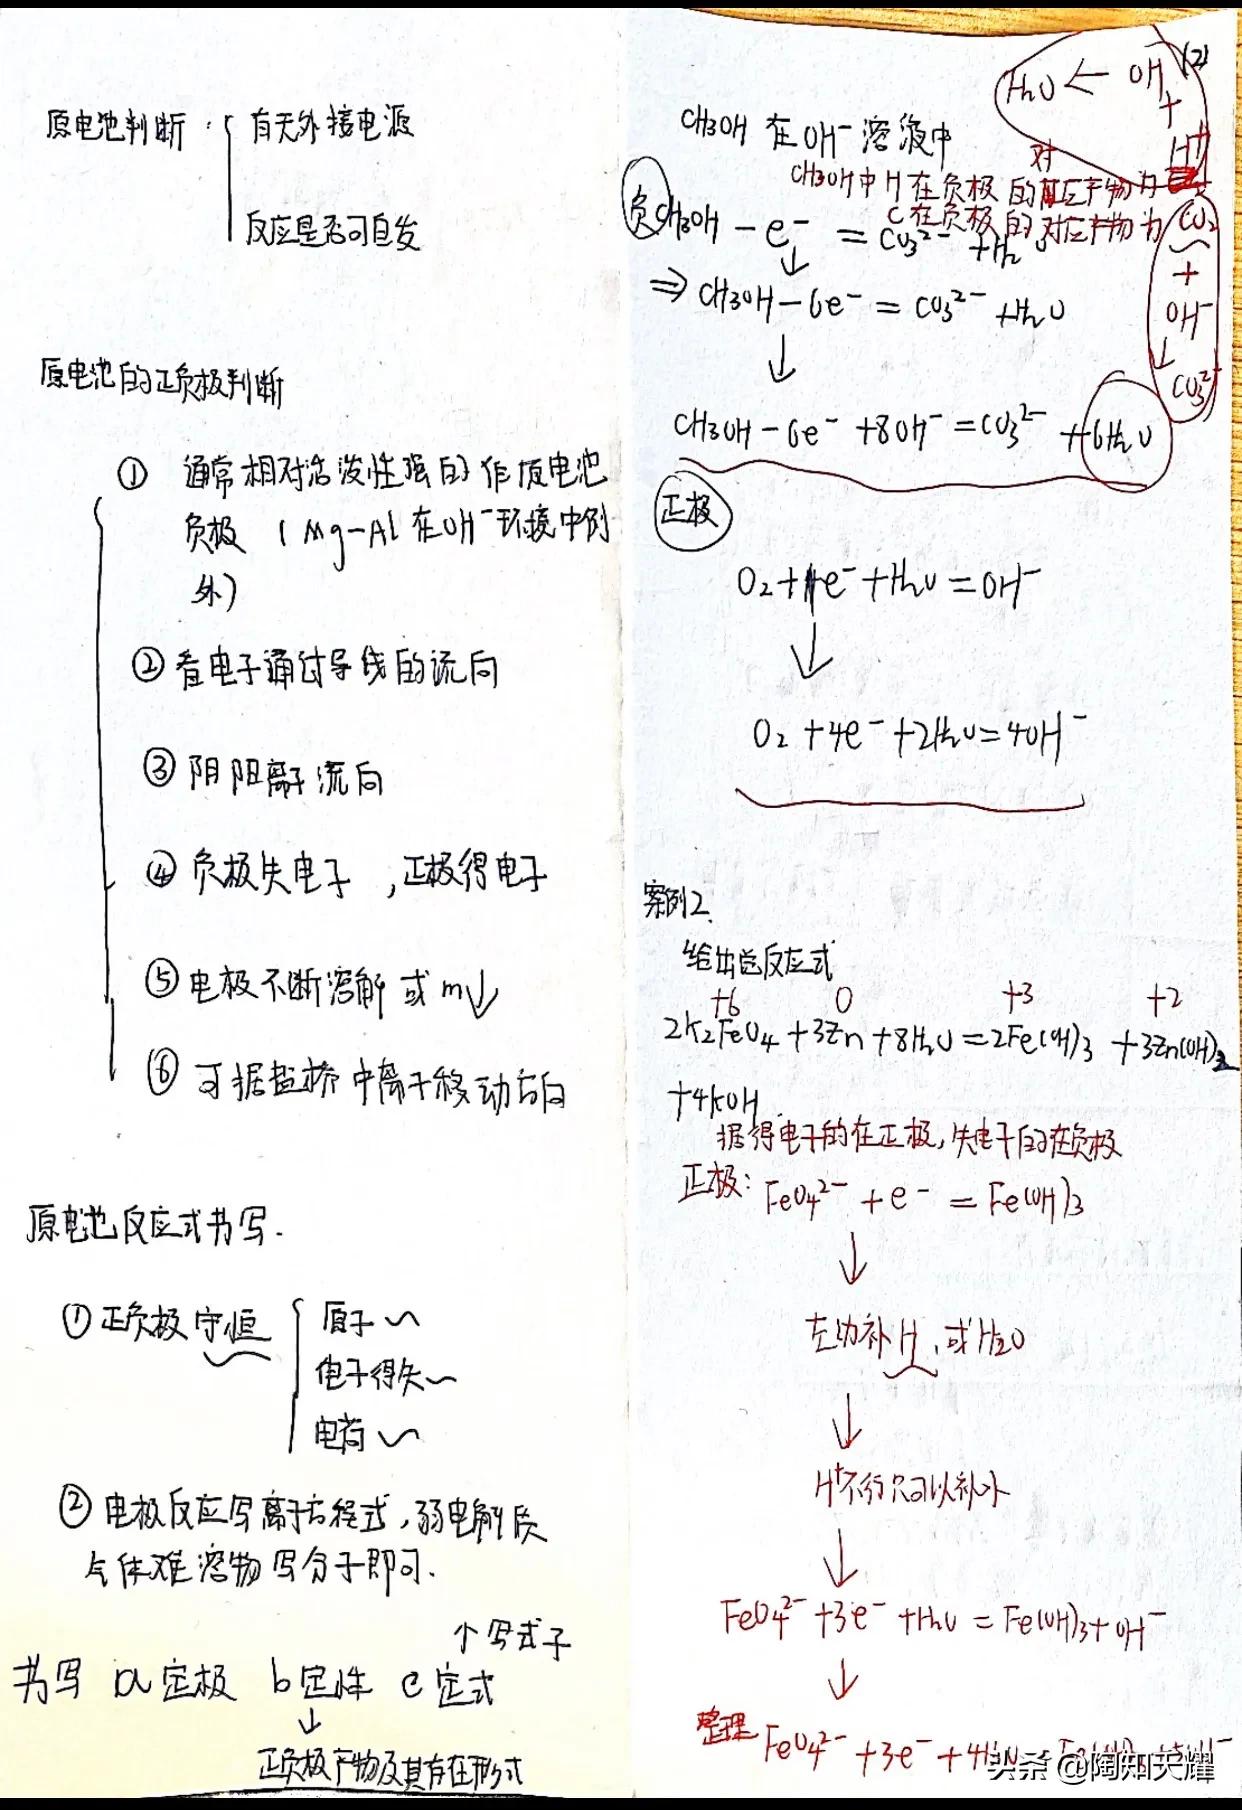 原电池判断
有无外接电源
反应是否可自发
原电池的正负极判断
① 通常相对活泼性强的作原电池
负极 (Mg-Al在OH⁻环境中例
外)
② 看电子通过导线的流向
③ 阴阳离子流向
④ 负极失电子,正极得电子
⑤ 电极不断溶解或m↓
⑥ 可据盐桥中离子移动方向
原电池反应式书写.
① 正负极守恒
原子～
电子得失～
电荷～
② 电极反应写离子方程式,弱电解质
气体难溶物写分子即可.
个写式子
书写 a定极 b定性 c定式
↓
正负极产物及其存在形式
(2)
H₂O ← OH⁻
+
H⁺
CH3OH 在OH⁻溶液中
CH3OH中H在负极的对应产物为
C在负极的对应产物为 CO₂
+
OH⁻
↓
CO₃²⁻
负 CH3OH - e⁻ = CO₃²⁻ + H₂O
↓
⇒ CH3OH - 6e⁻ = CO₃²⁻ + H₂O
↓
CH3OH - 6e⁻ + 8OH⁻ = CO₃²⁻ + 6H₂O
正极
O₂ + 4e⁻ + H₂O = OH⁻
↓
O₂ + 4e⁻ + 2H₂O = 4OH⁻
案例2.
给出总反应式
+6 0 +3 +2
2K₂FeO₄ + 3Zn + 8H₂O = 2Fe(OH)₃ + 3Zn(OH)₂
+4KOH
据得电子的在正极,失电子的在负极
正极: FeO₄²⁻ + e⁻ = Fe(OH)₃
↓
左边补H,或H₂O
↓
H⁺不行只可以补水
↓
FeO₄²⁻ + 3e⁻ + H₂O = Fe(OH)₃ + OH⁻
↓
整理 FeO₄²⁻ + 3e⁻ + 4H₂O
头条 @陶知天耀